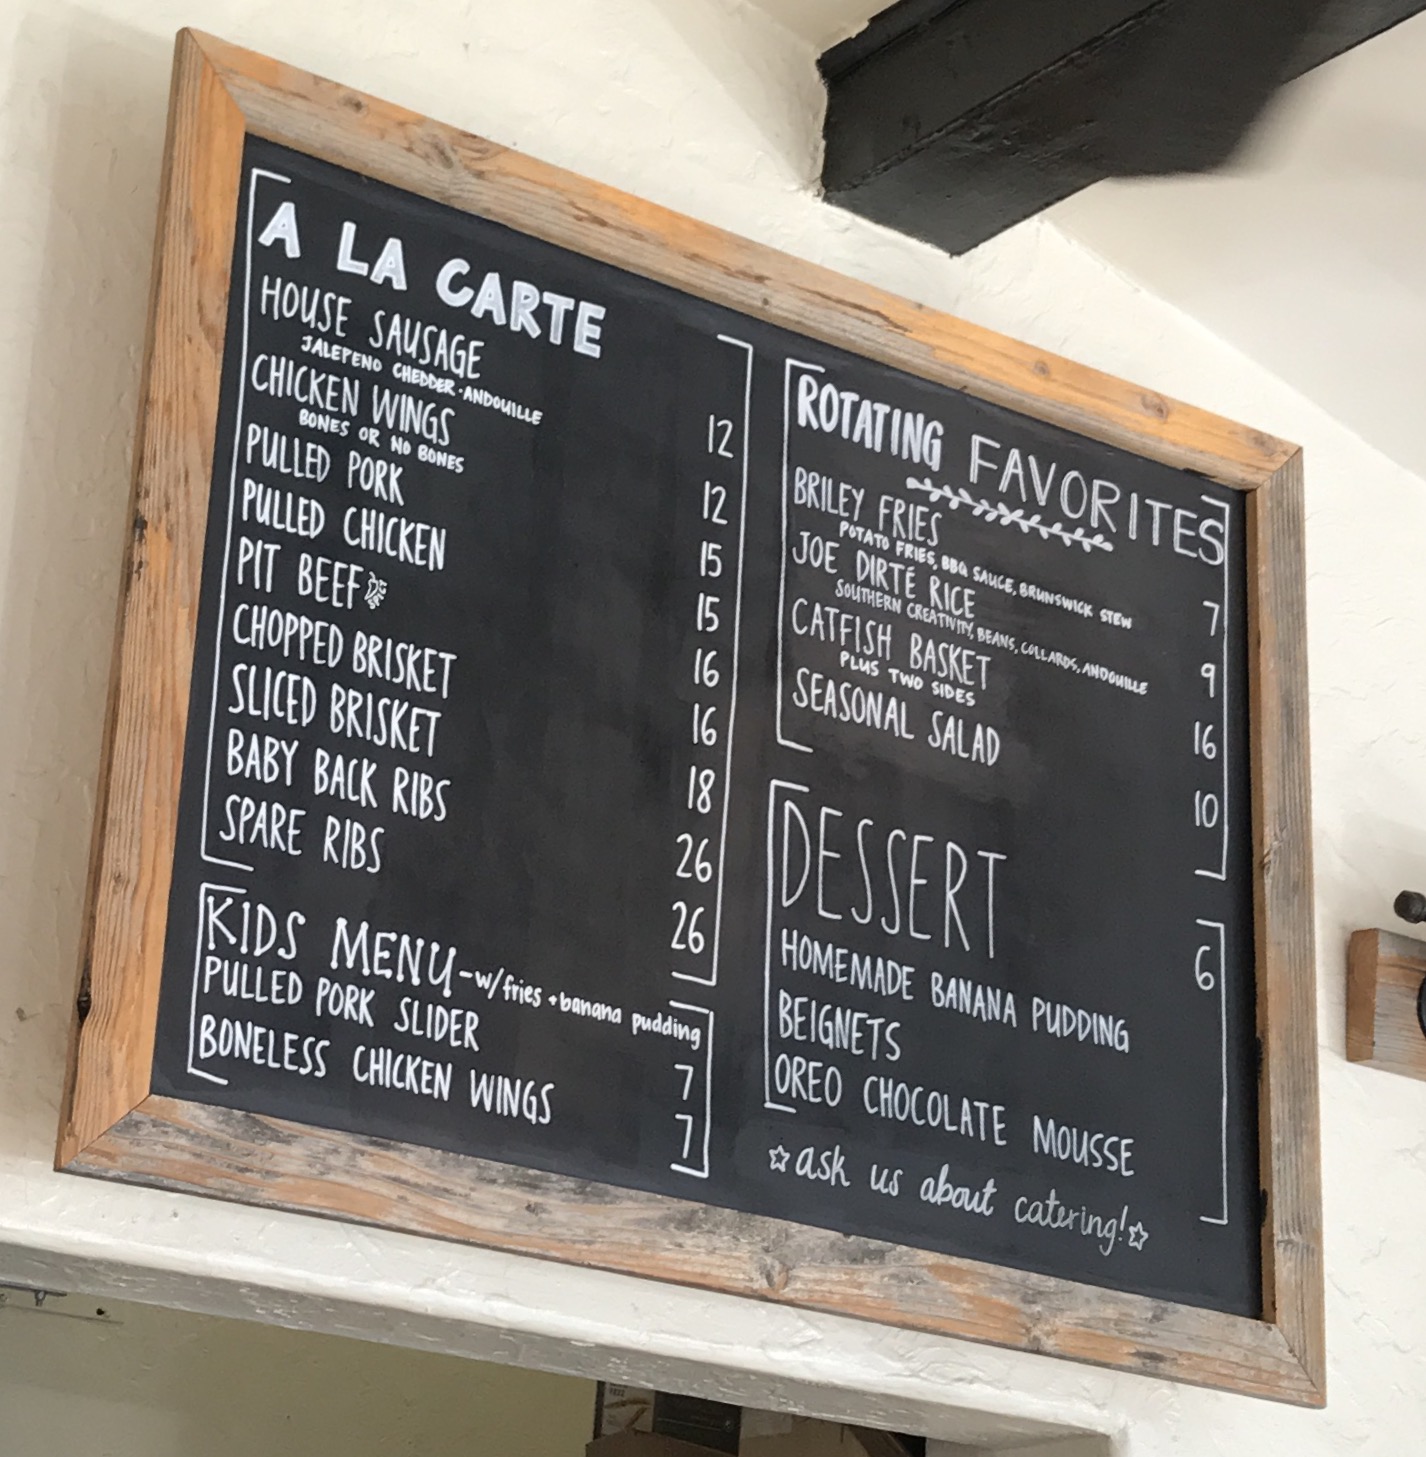 A LA CARTE
HOUSE SAUSAGE 12
JALEPENO CHEDDER · ANDOUILLE
CHICKEN WINGS 12
BONES OR NO BONES
PULLED PORK 15
PULLED CHICKEN 15
PIT BEEF 16
CHOPPED BRISKET 16
SLICED BRISKET 18
BABY BACK RIBS 26
SPARE RIBS 26
KIDS MENU - w/ fries + banana pudding
PULLED PORK SLIDER 7
BONELESS CHICKEN WINGS 7
ROTATING FAVORITES
BRILEY FRIES 7
POTATO FRIES, BBQ SAUCE, BRUNSWICK STEW
JOE DIRTÉ RICE 9
SOUTHERN CREATIVITY, BEANS, COLLARDS, ANDOUILLE
CATFISH BASKET 16
PLUS TWO SIDES
SEASONAL SALAD 10
DESSERT 6
HOMEMADE BANANA PUDDING
BEIGNETS
OREO CHOCOLATE MOUSSE
☆ask us about catering!☆